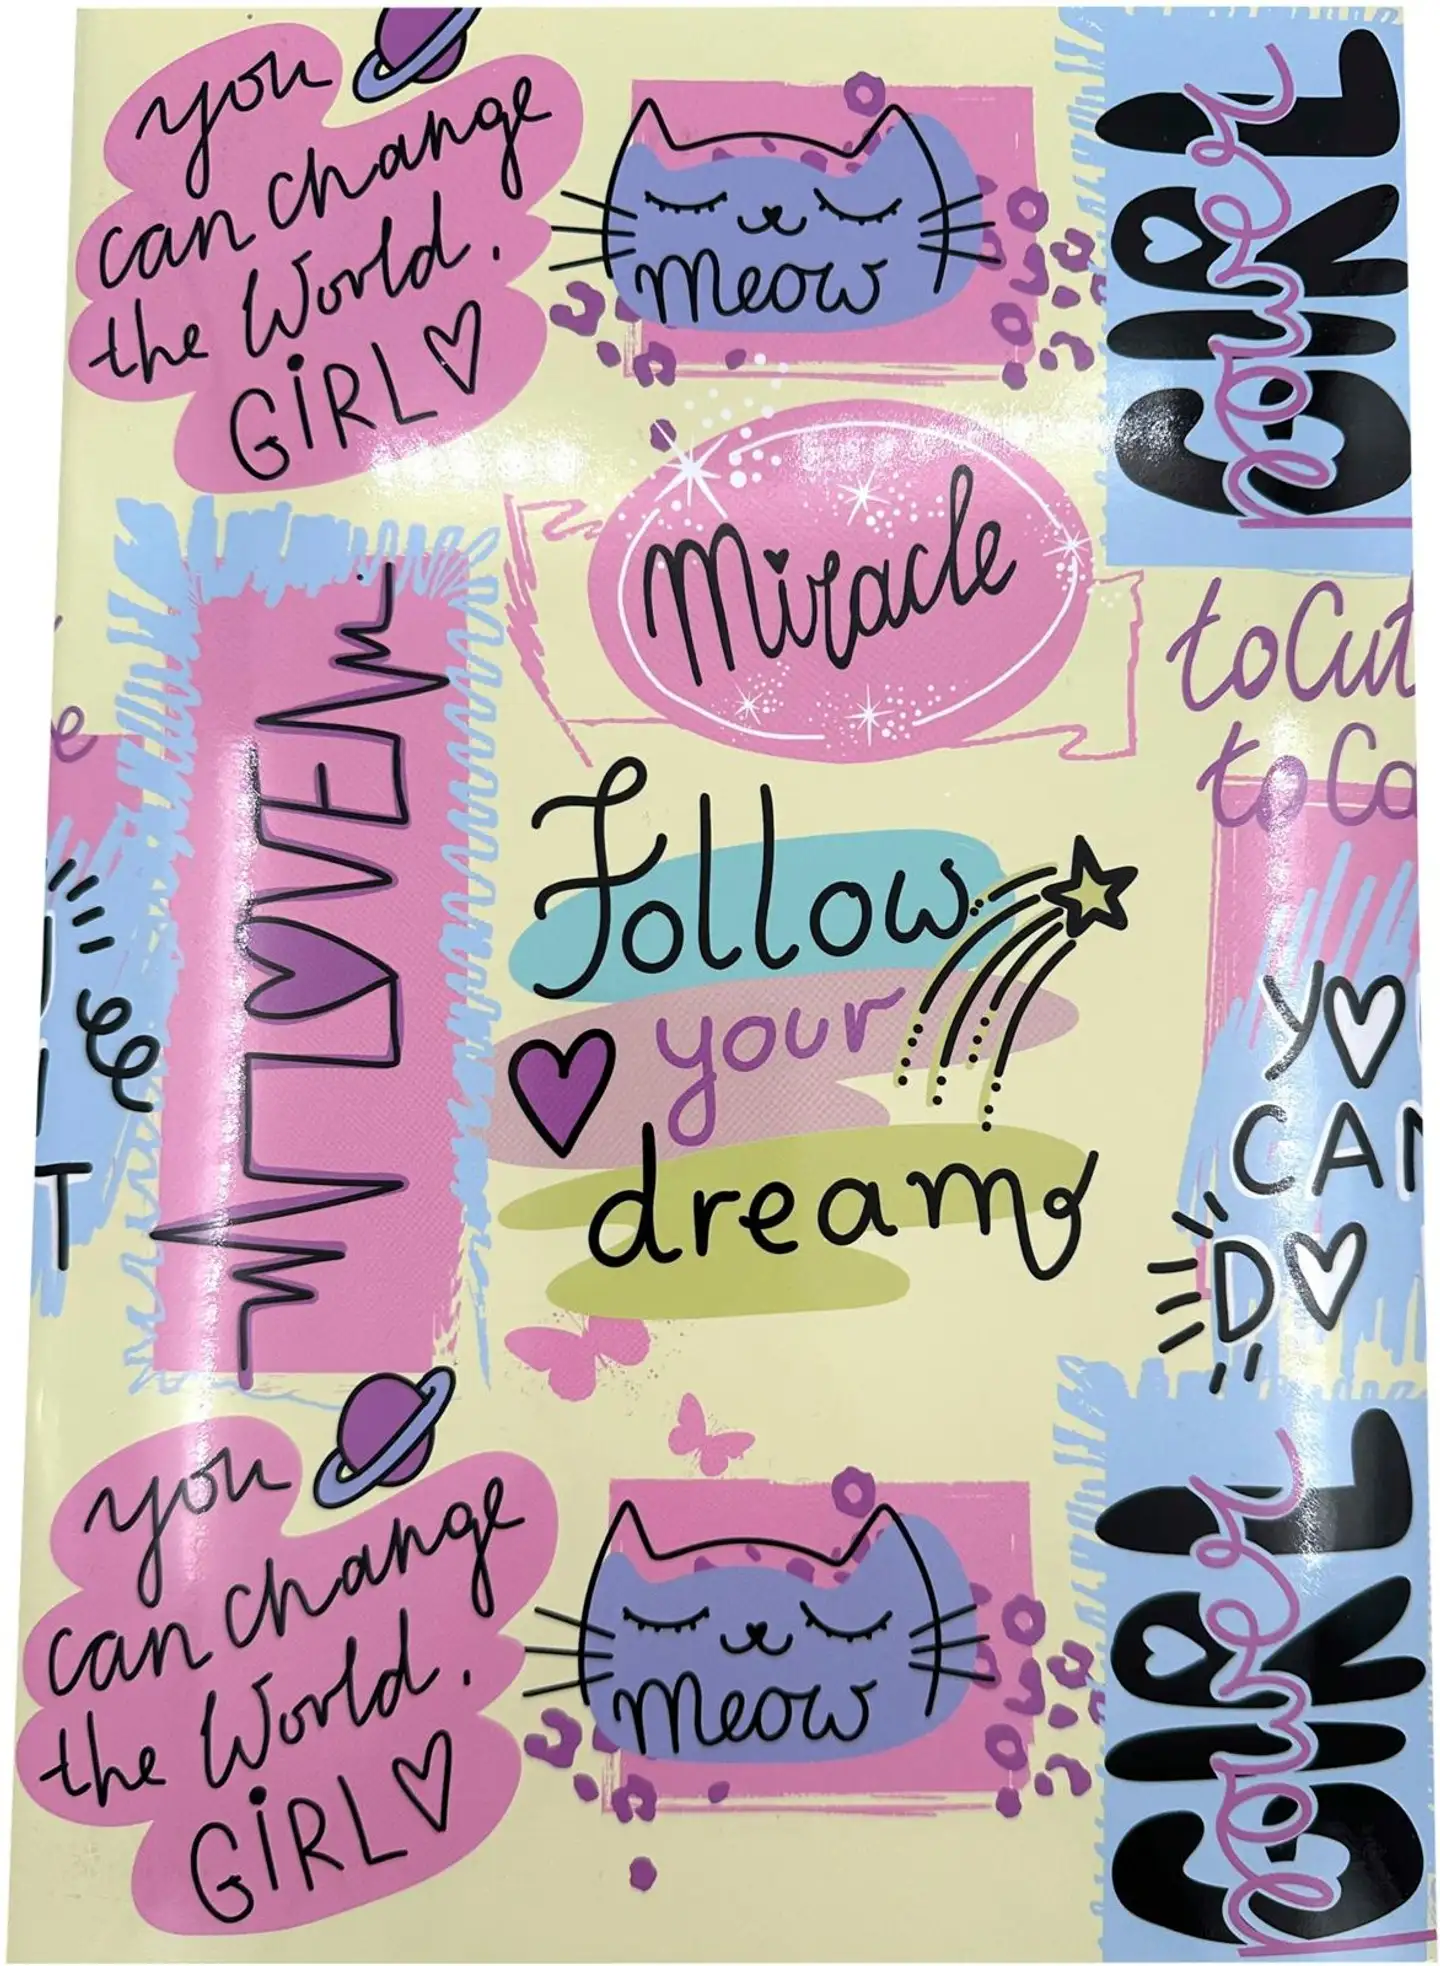 you
can change
the World.
GiRL
meow
GIRL
power
Miracle
to Cut
to Co
LOVE
Follow
your
dream
YO
CAN
DO
T
e
you
can change
the World.
GiRL
meow
GIRL
power